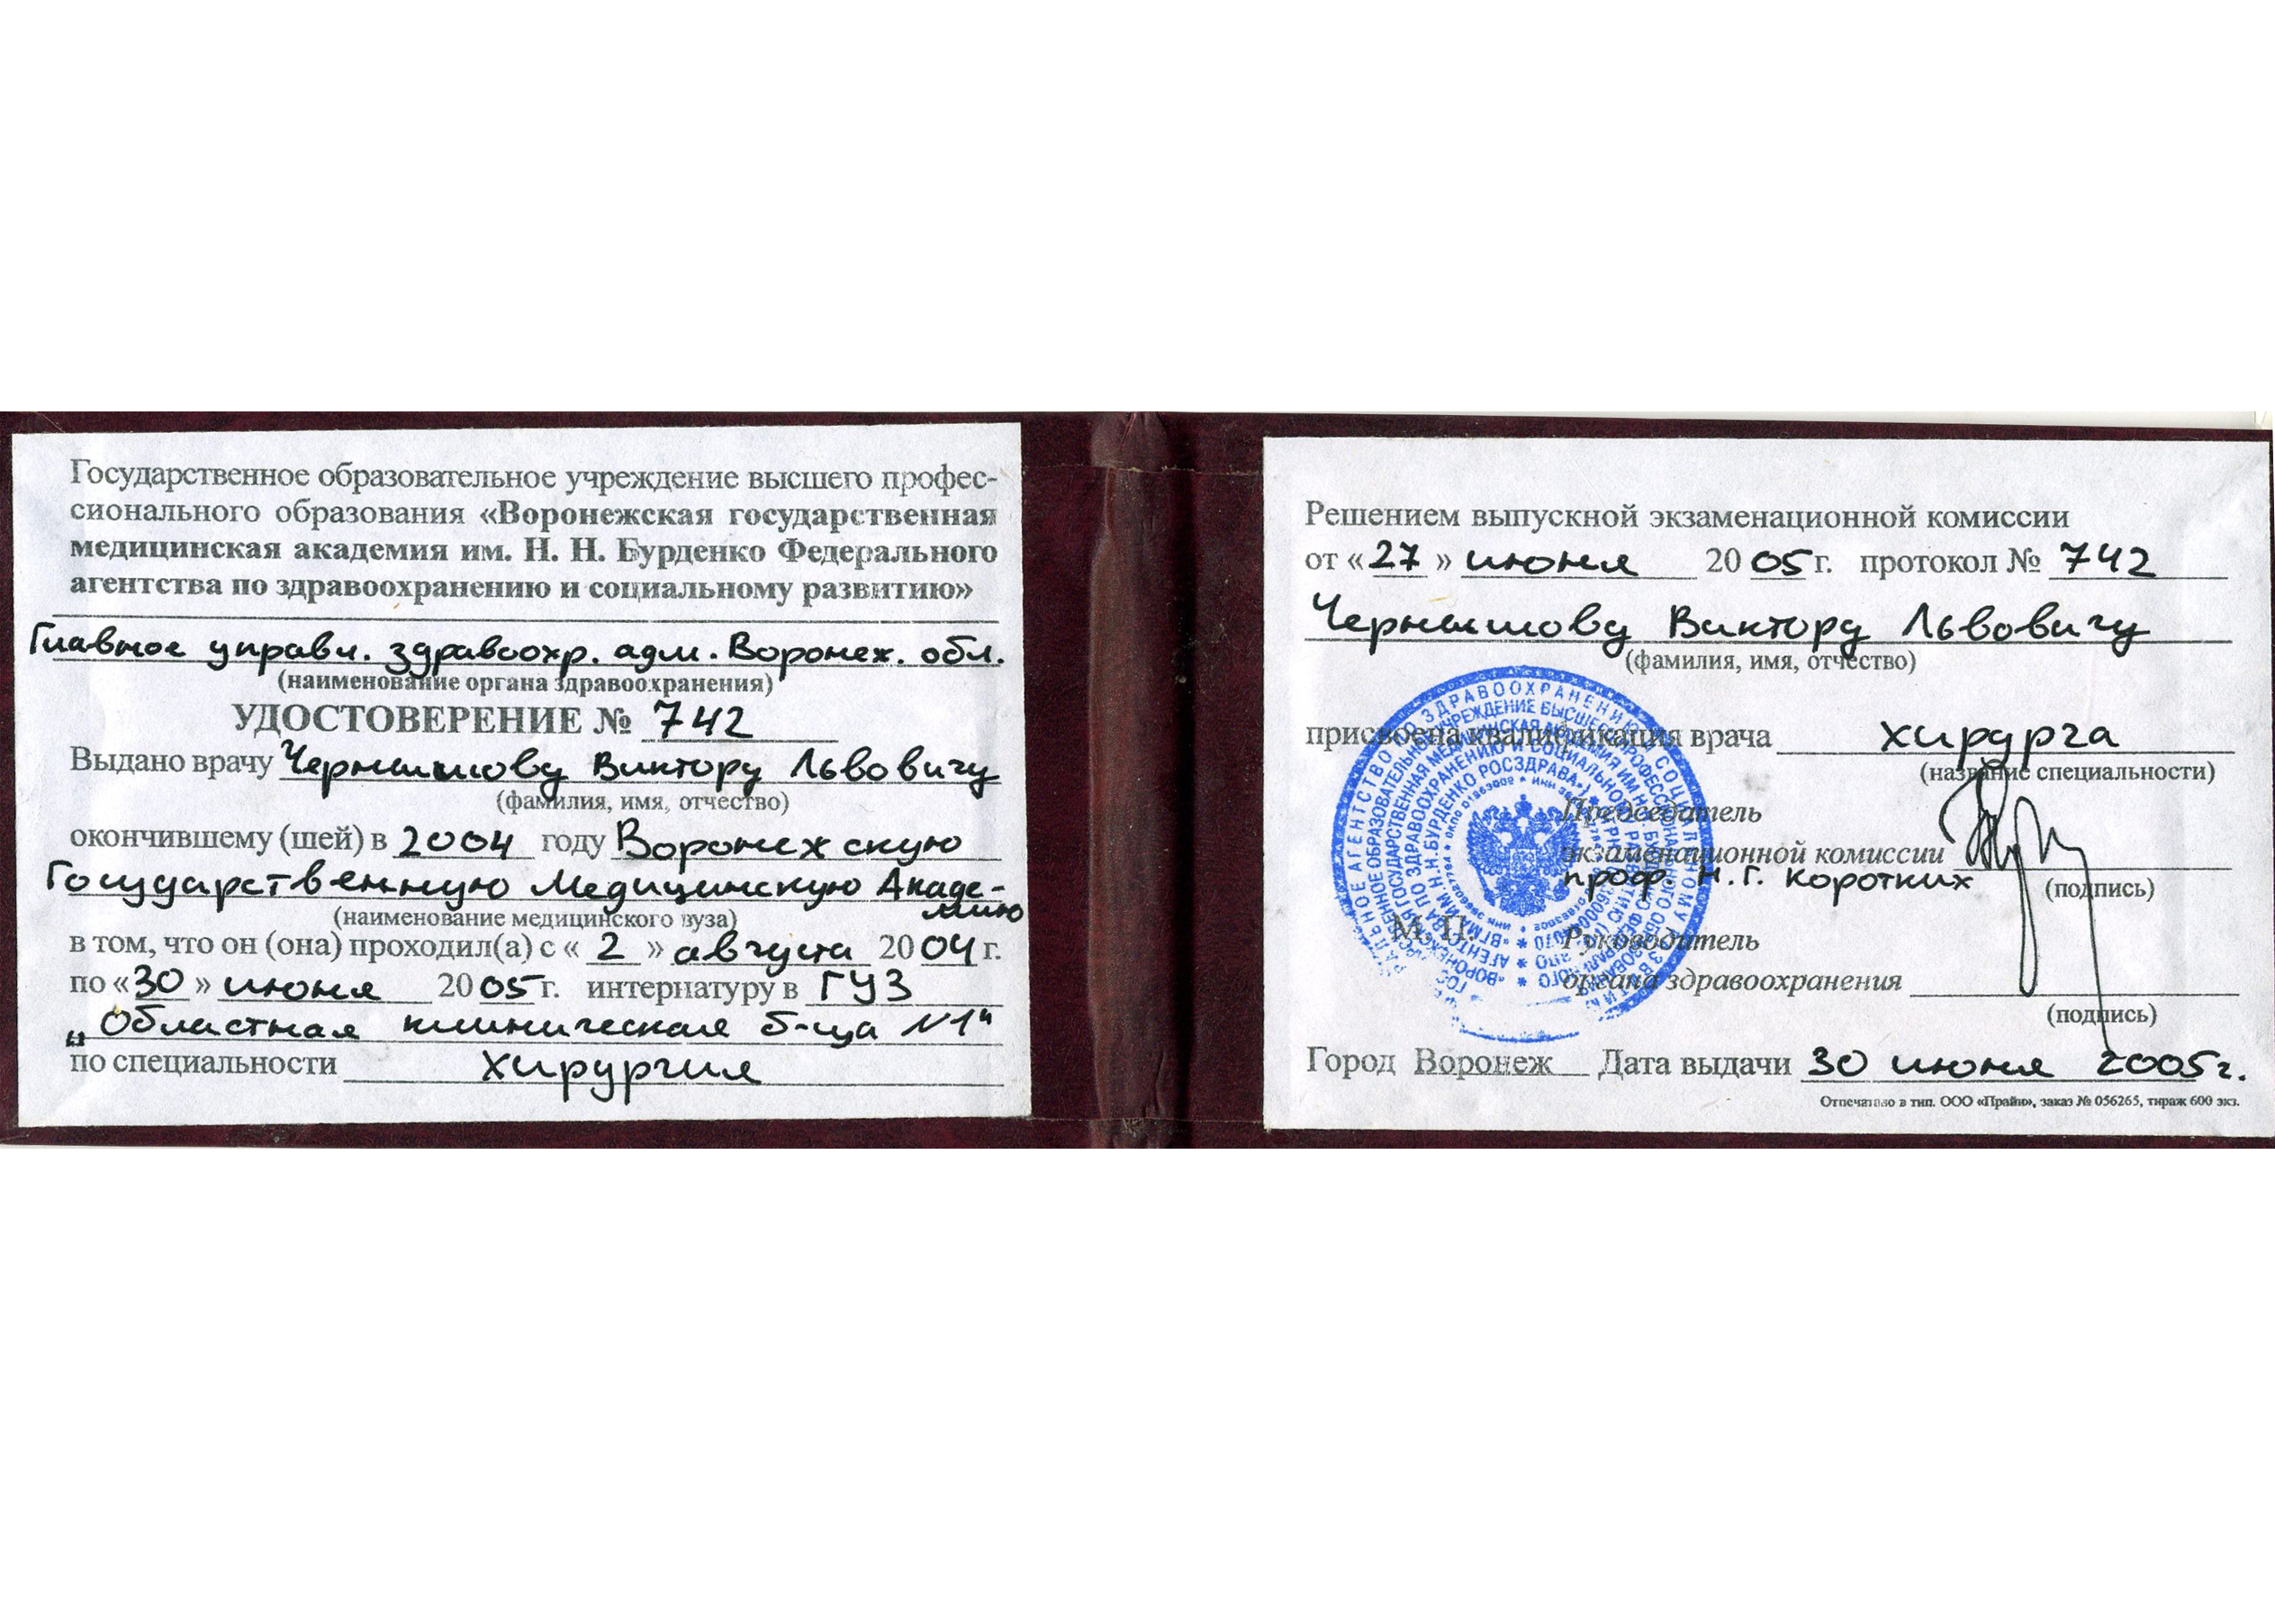 Государственное образовательное учреждение высшего профес-
сионального образования «Воронежская государственная
медицинская академия им. Н. Н. Бурденко Федерального
агентства по здравоохранению и социальному развитию»
Главное управл. здравоохр. адм. Воронеж. обл.
(наименование органа здравоохранения)
УДОСТОВЕРЕНИЕ № 742
Выдано врачу Чернышову Виктору Львовичу
(фамилия, имя, отчество)
окончившему (шей) в 2004 году Воронежскую
Государственную Медицинскую Акаде-
мию
(наименование медицинского вуза)
в том, что он (она) проходил(а) с « 2 » августа 20 04 г.
по « 30 » июня 20 05 г. интернатуру в ГУЗ
„Областная клиническая б-ца №1"
по специальности хирургия
Решением выпускной экзаменационной комиссии
от « 27 » июня 20 05 г. протокол № 742
Чернышову Виктору Львовичу
(фамилия, имя, отчество)
присвоена квалификация врача хирурга
(название специальности)
Председатель
экзаменационной комиссии
проф. Н.Г. Коротких
(подпись)
М. П.
Руководитель
органа здравоохранения
(подпись)
Город Воронеж Дата выдачи 30 июня 2005г.
Отпечатано в тип. ООО «Прайм», заказ № 056265, тираж 600 экз.